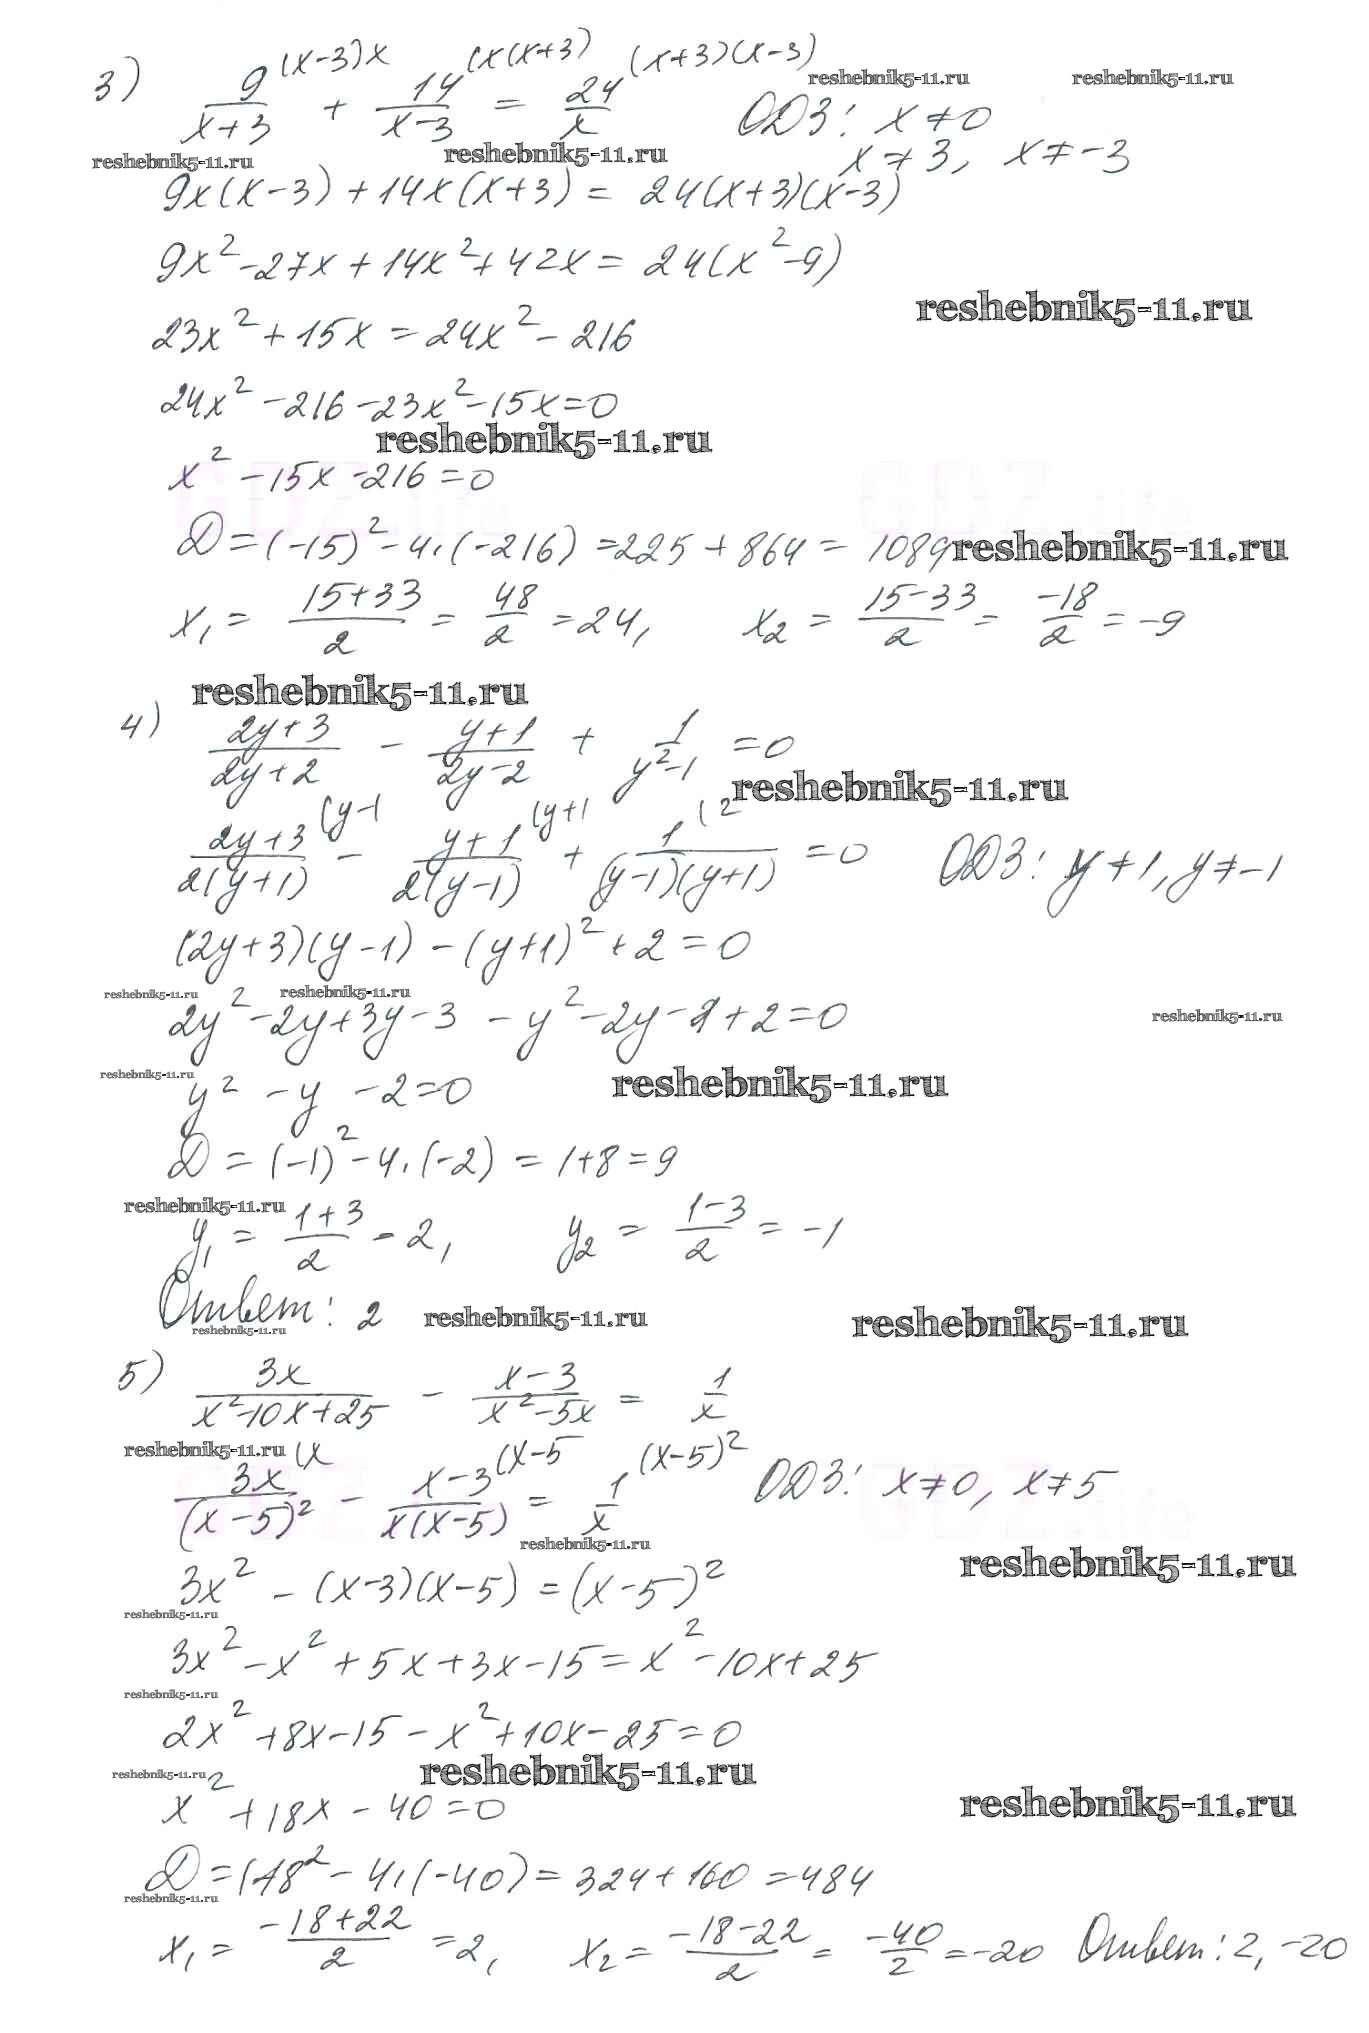 3) 9/(x+3) (x-3)x + 14/(x-3) (x(x+3) = 24/x (x+3)(x-3) ОДЗ: x≠0
reshebnik5-11.ru reshebnik5-11.ru
reshebnik5-11.ru reshebnik5-11.ru x≠3, x≠-3
9x(x-3)+14x(x+3) = 24(x+3)(x-3)
9x²-27x+14x²+42x = 24(x²-9)
reshebnik5-11.ru
23x²+15x = 24x²-216
24x²-216-23x²-15x=0
reshebnik5-11.ru
x²-15x-216=0
GDZ.life GDZ.life
D=(-15)²-4·(-216)=225+864=1089 reshebnik5-11.ru
x₁ = (15+33)/2 = 48/2 = 24, x₂ = (15-33)/2 = -18/2 = -9
reshebnik5-11.ru
4) (2y+3)/(2y+2) - (y+1)/(2y-2) + 1/(y²-1) = 0
reshebnik5-11.ru
(2y+3)/(2(y+1)) (y-1 - (y+1)/(2(y-1)) (y+1 + 1/((y-1)(y+1)) (2 = 0 ОДЗ: y≠1, y≠-1
(2y+3)(y-1)-(y+1)²+2=0
reshebnik5-11.ru reshebnik5-11.ru
2y²-2y+3y-3-y²-2y-1+2=0 reshebnik5-11.ru
reshebnik5-11.ru reshebnik5-11.ru
y²-y-2=0
D=(-1)²-4·(-2)=1+8=9
reshebnik5-11.ru
y₁ = (1+3)/2 = 2, y₂ = (1-3)/2 = -1
Ответ: 2 reshebnik5-11.ru reshebnik5-11.ru
reshebnik5-11.ru
5) 3x/(x²-10x+25) - (x-3)/(x²-5x) = 1/x
reshebnik5-11.ru
3x/(x-5)² (x - (x-3)/(x(x-5)) (x-5 = 1/x (x-5)² ОДЗ: x≠0, x≠5
GDZ GDZ.life
reshebnik5-11.ru reshebnik5-11.ru
3x²-(x-3)(x-5)=(x-5)²
reshebnik5-11.ru
3x²-x²+5x+3x-15=x²-10x+25
reshebnik5-11.ru
2x²+8x-15-x²+10x-25=0
reshebnik5-11.ru reshebnik5-11.ru
x²+18x-40=0 reshebnik5-11.ru
D=(18²-4·(-40)=324+160=484
reshebnik5-11.ru
x₁ = (-18+22)/2 = 2, x₂ = (-18-22)/2 = -40/2 = -20 Ответ: 2, -20